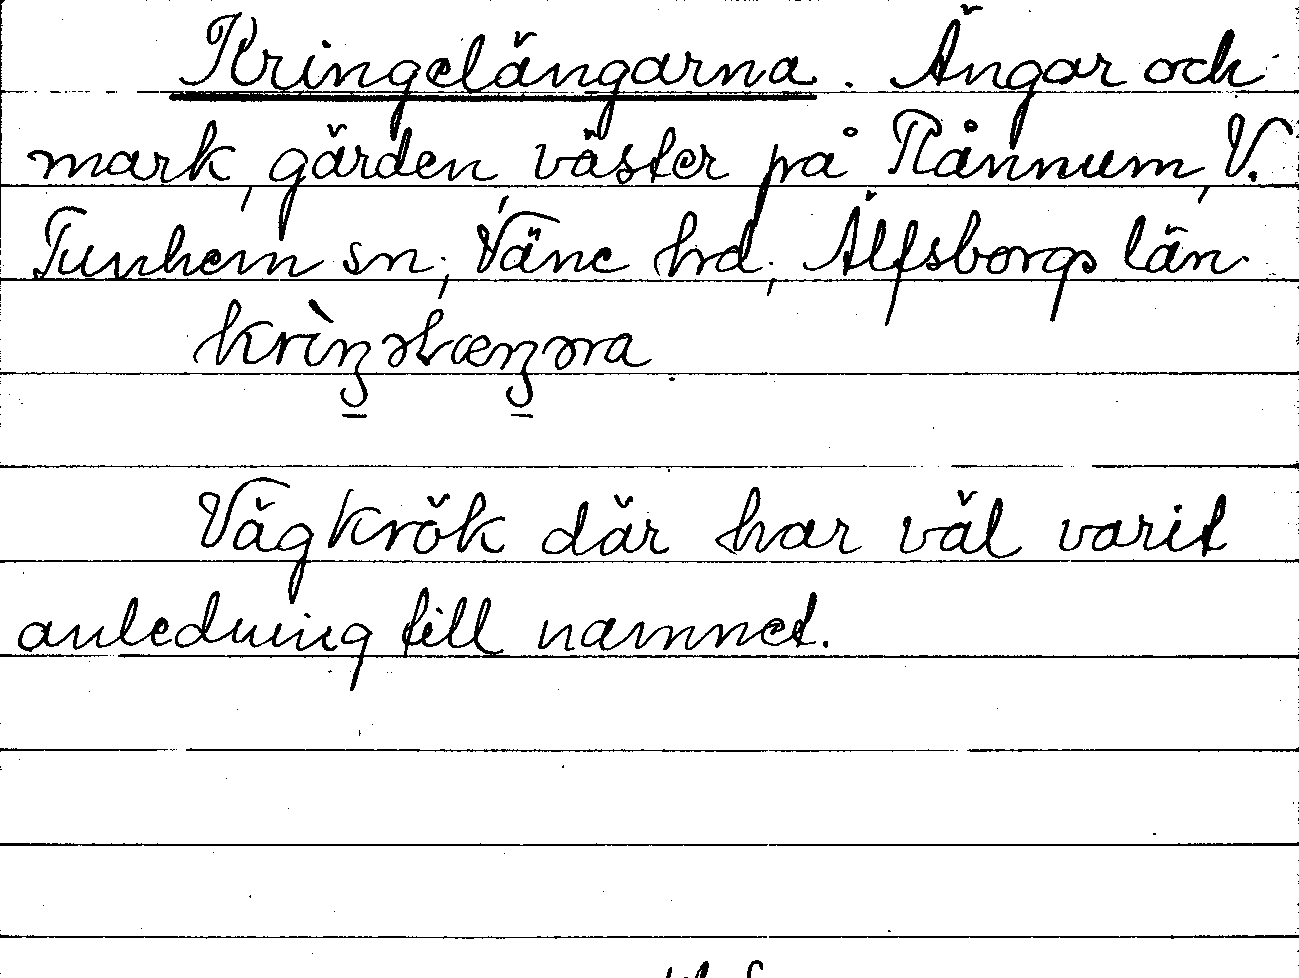 Kringelängarna. Ängar och
mark, gärden, väster på Rånnum, V.
Tunhem sn; Väne hd; Älfsborgs län
Vägkrök där har väl varit
anledning till namnet.